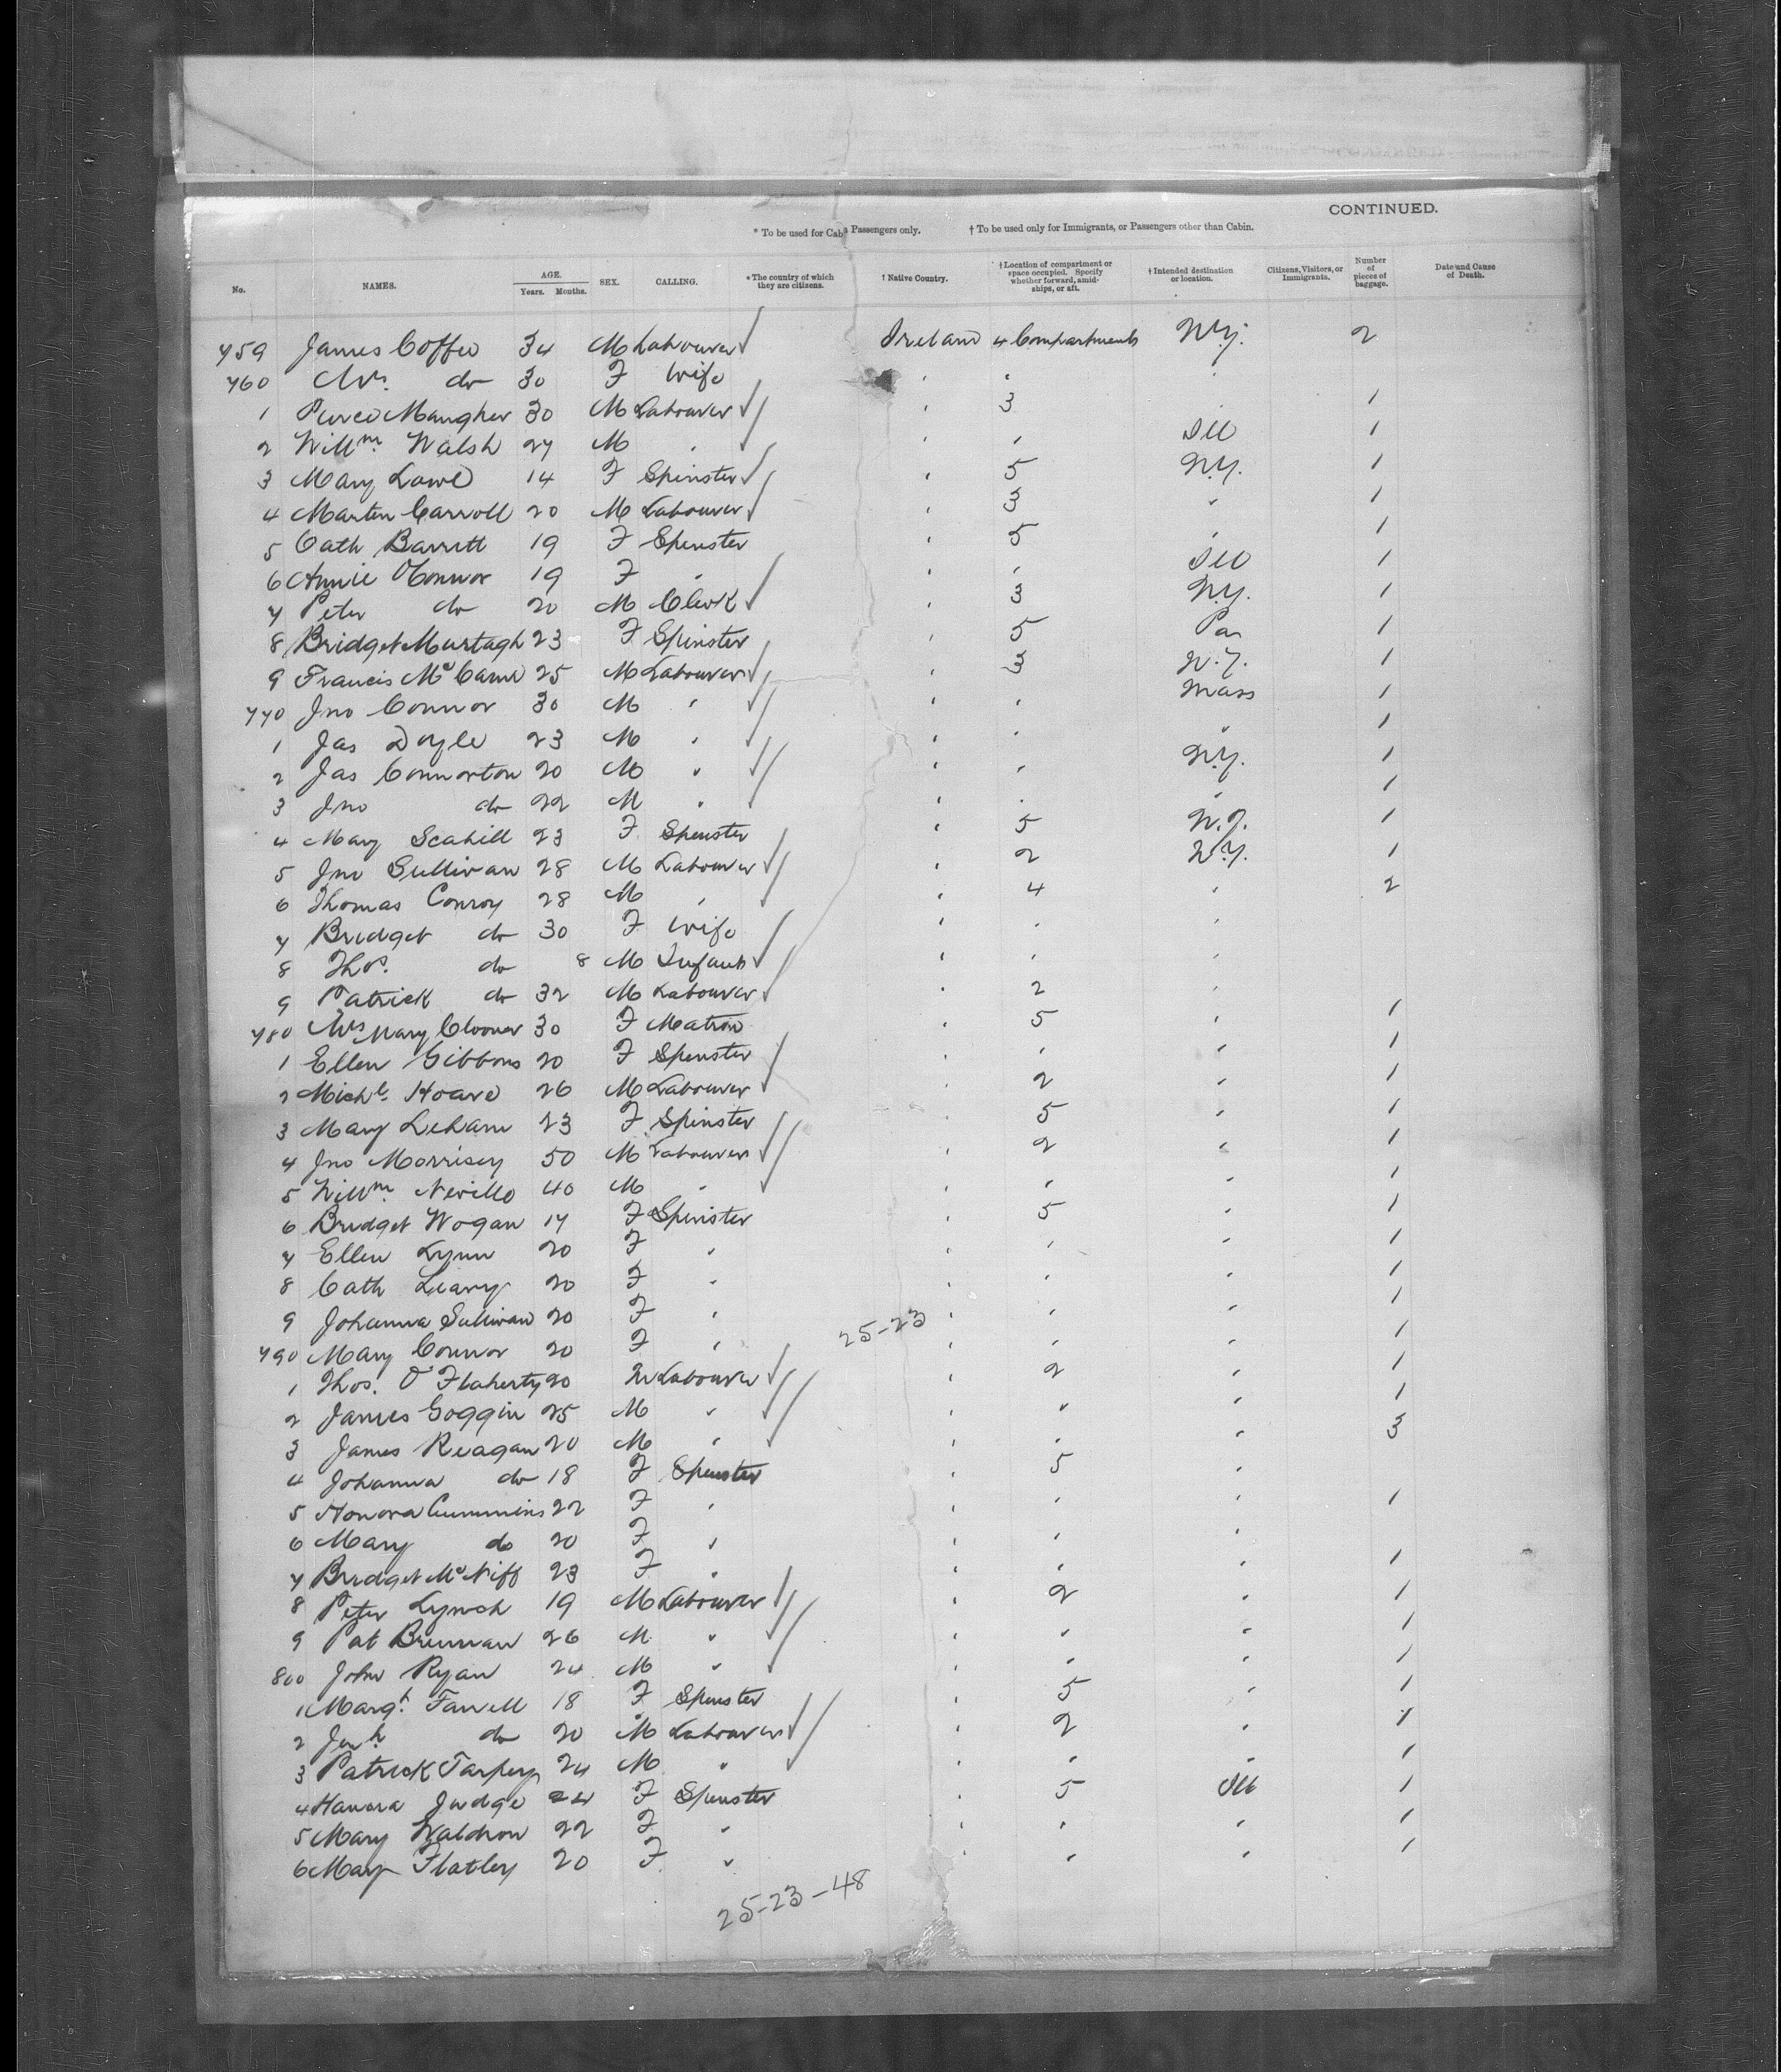 CONTINUED.
* To be used for Cabin Passengers only. † To be used only for Immigrants, or Passengers other than Cabin.
No. NAMES. AGE. Years. Months. SEX. CALLING. * The country of which they are citizens. † Native Country. † Location of compartment or space occupied. Specify whether forward, amidships, or aft. † Intended destination or location. Citizens, Visitors, or Immigrants. Number of pieces of baggage. Date and Cause of Death.
759 James Coffee 34 M Labourer Ireland 4 Compartments N.Y. 2
760 Mrs. do 30 F Wife " " "
1 Pierce Maugher 30 M Labourer " 3 " 1
2 Willm. Walsh 27 M " " " Ill 1
3 Mary Lowe 14 F Spinster " 5 N.Y. 1
4 Martin Carroll 20 M Labourer " 3 " 1
5 Cath Barrett 19 F Spinster " 5 " 1
6 Annie O'Connor 19 F " " " Ill 1
7 Peter do 20 M Clerk " 3 N.Y. 1
8 Bridget Murtagh 23 F Spinster " 5 Pa 1
9 Francis McCann 25 M Labourer " 3 N.Y. 1
770 Jno Connor 30 M " " " Mass 1
1 Jas Doyle 23 M " " " " 1
2 Jas Connorton 20 M " " " N.Y. 1
3 Jno do 22 M " " " " 1
4 Mary Scahill 23 F Spinster " 5 N.J. 1
5 Jno Sullivan 28 M Labourer " 2 N.Y. 1
6 Thomas Conroy 28 M " " 4 " 2
7 Bridget do 30 F Wife " " "
8 Thos. do 8 M Infant " " "
9 Patrick do 32 M Labourer " 2 "
780 Mrs Mary Cloonar 30 F Matron " 5 " 1
1 Ellen Gibbons 20 F Spinster " " " 1
2 Michl. Hoare 26 M Labourer " 2 " 1
3 Mary Lehane 23 F Spinster " 5 " 1
4 Jno Morrisey 50 M Labourer " 2 " 1
5 Willm. Neville 40 M " " " " 1
6 Bridget Wogan 17 F Spinster " 5 " 1
7 Ellen Lynn 20 F " " " " 1
8 Cath Leary 20 F " " " " 1
9 Johanna Sullivan 20 F " " " " 1
25-23
790 Mary Connor 20 F " " " " 1
1 Thos. O'Flaherty 20 M Labourer " 2 " 1
2 James Goggin 25 M " " " " 1
3 James Reagan 20 M " " " " 3
4 Johanna do 18 F Spinster " 5 "
5 Honora Cummins 22 F " " " " 1
6 Mary do 20 F " " " "
7 Bridget McNiff 23 F " " " " 1
8 Peter Lynch 19 M Labourer " 2 " 1
9 Pat Brennan 26 M " " " " 1
800 John Ryan 24 M " " " " 1
1 Margt. Farrell 18 F Spinster " 5 " 1
2 do 20 M Labourer " 2 " 1
3 Patrick Tarpey 24 M " " " " 1
4 Hanora Judge 24 F Spinster " 5 Ill 1
5 Mary Waldron 22 F " " " " 1
6 Mary Flatley 20 F " " " " 1
25-23-48